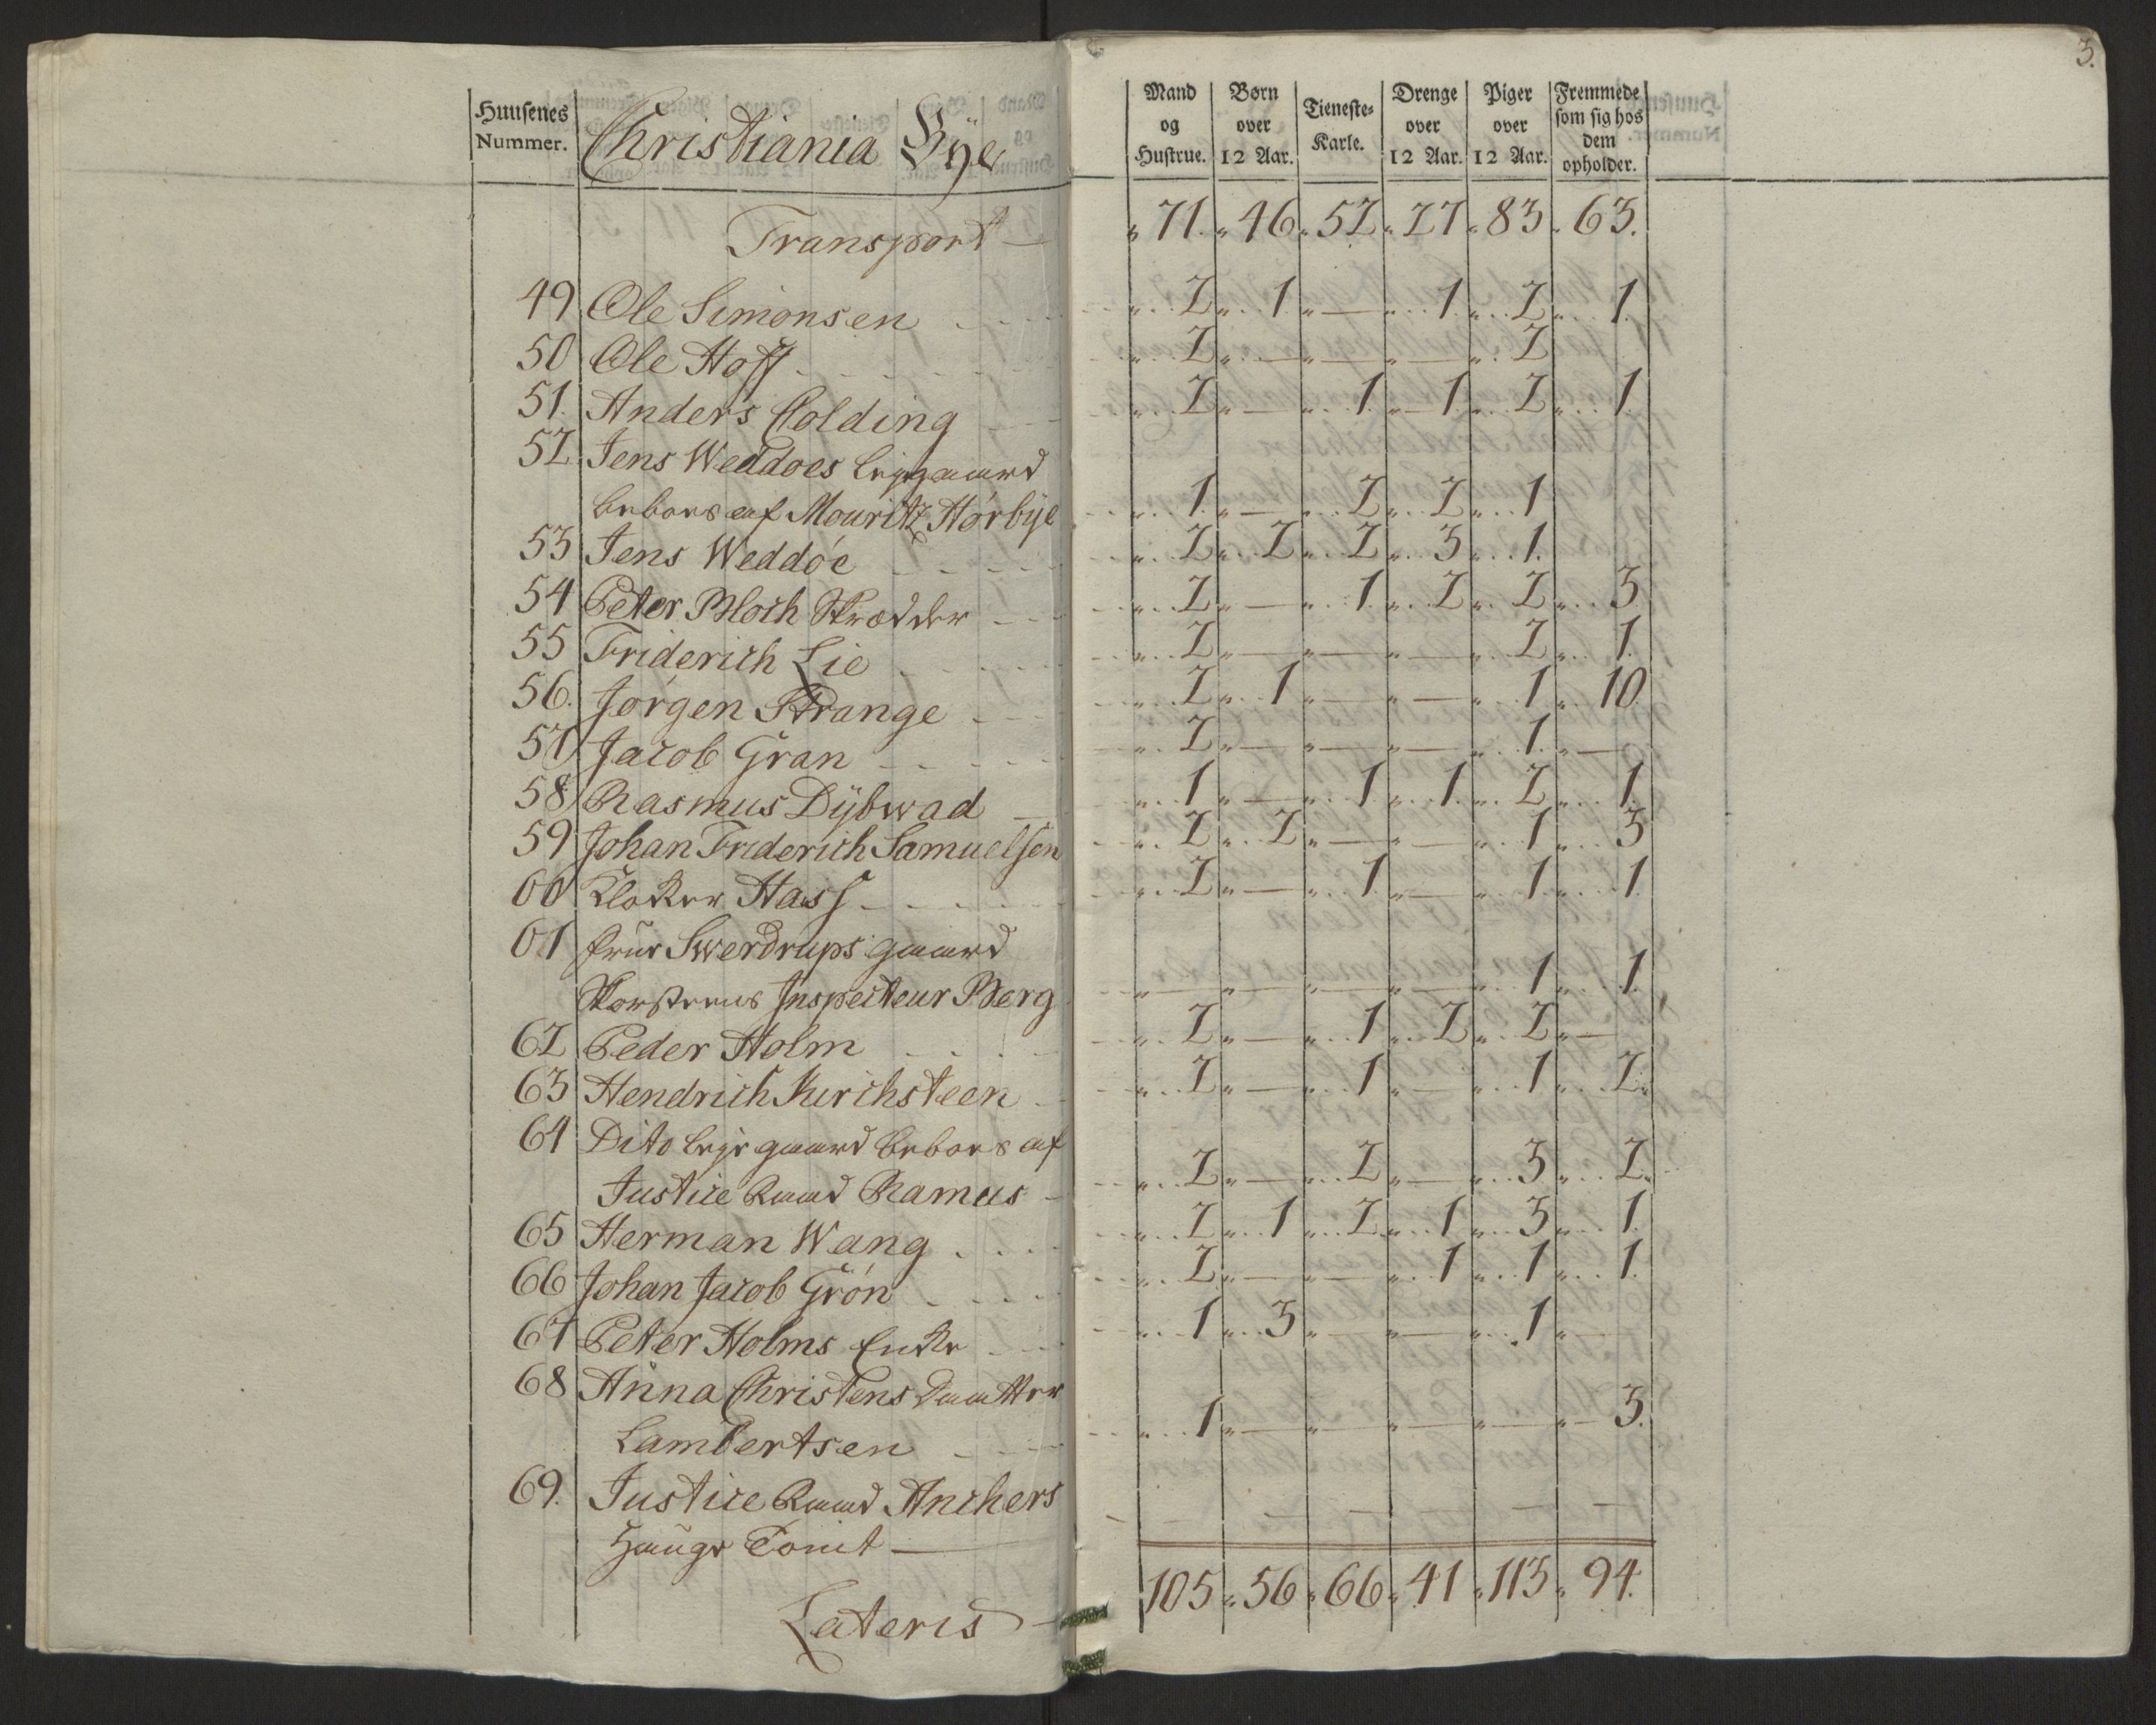 3.
Huusenes Nummer. Christiania Bÿe Mand og Hustrue. Børn over 12 Aar. Tieneste-Karle. Drenge over 12 Aar. Piger over 12 Aar. Fremmede som sig hos dem opholder.
Transport — 71. 46. 52. 27. 83. 63.
49 Ole Simonsen 2 1 — 1 2 1
50 Ole Hoff 2 — — — 2
51. Anders Colding 2 — 1 1 2 1
52 Jens Weddøes leyegaard
beboes af Mouritz Hørbÿe 1 — 2 2 1
53 Jens Weddøe 2 2 2 3 1.
54 Peter Bloch Skrædder 2 — 1 2 2 3
55 Friderich Lie 2 — — — 2 1
56. Jørgen Strange 2 1 — — 1 10
57 Jacob Gran 2 — — — 1 —
58 Rasmus Dÿbwad 1 — 1 1 2 1
59 Johan Friderich Samuelsen 2 2 — — 1 3
60 Kloker Hass 2 — 1 — 1 1
61 frue Swerdrups gaard
Skorsteens Inspecteur Berg — — — — 1 1
62 Peder Holm 2 — 1 2 2 —
63 Hendrich Kirchsteen 2 — 1 — 1 2
64 Dito leye gaard beboes af
Justice Raad Ramus 2 — 2 — 3 2
65 Herman Wang 2 1 2 1 3 1
66 Johan Jacob Grøn 2 — — 1 1 1
67 Peter Holms Enke 1 3 — — 1 —
68 Anna Christens Daatter
Lambertsen 1 — — — — 3.
69. Justice Raad Anchers
Hauge Tomt — — — — — —
Lateris — 105. 56. 66. 41. 113. 94.